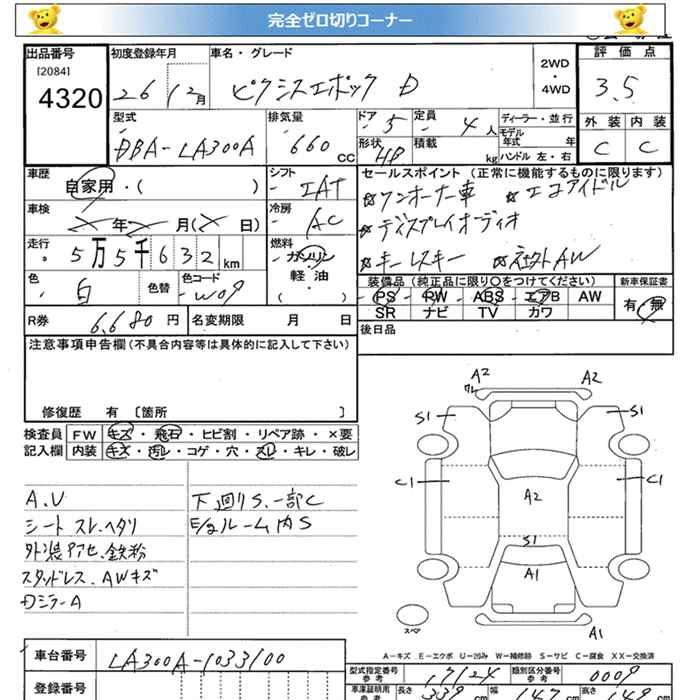 完全ゼロ切りコーナー
出品番号 初度登録年月 車名・グレード 評価点
[2084]
4320 26 12月 ピクシスエポック D 2WD・4WD 3.5
型式 排気量 ドア 定員 ディーラー・並行 外装 内装
DBA-LA300A 660 CC 5 4人 モデル年式 年 C C
形状 HB 積載 kg ハンドル 左・右
車歴 シフト セールスポイント (正常に機能するものに限ります)
自家用・( ) IAT ☆ワンオーナー車 ☆エコアイドル
車検 年 月( 日) 冷房 AC ☆ディスプレイオーディオ
走行 5万5千632km 燃料 ガソリン 軽油 ( ) ☆キーレスキー ☆社外AW
色 白 色替 色コード W09
装備品 (純正品に限り○をつけてください) 新車保証書
PS PW ABS エアB AW 有・無
SR ナビ TV カワ
R券 6,680円 名変期限 月 日 後日品
注意事項申告欄(不具合内容等は具体的に記入して下さい)
修復歴 有 〔箇所 〕
検査員 FW キズ・飛石・ヒビ割・リペア跡・×要
記入欄 内装 キズ・汚レ・コゲ・穴・スレ・キレ・破レ
A.U 下回りS、一部C
シート スレ、ヘタリ E/gルーム内S
外装アセ、鉄粉
スタッドレス、AWキズ
Dミラー A
A2 A2
ワレ
S1 S1
C1 C1
A2
S1
A1
スペア
A1
A-キズ E-エクボ U-凹み W-補修跡 S-サビ C-腐食 XX-交換済
車台番号 LA300A-1033100
登録番号
型式指定番号 参考 17124 類別区分番号 参考 0009
車庫証明用 参考 長さ 339cm 幅 147cm 高さ 149cm